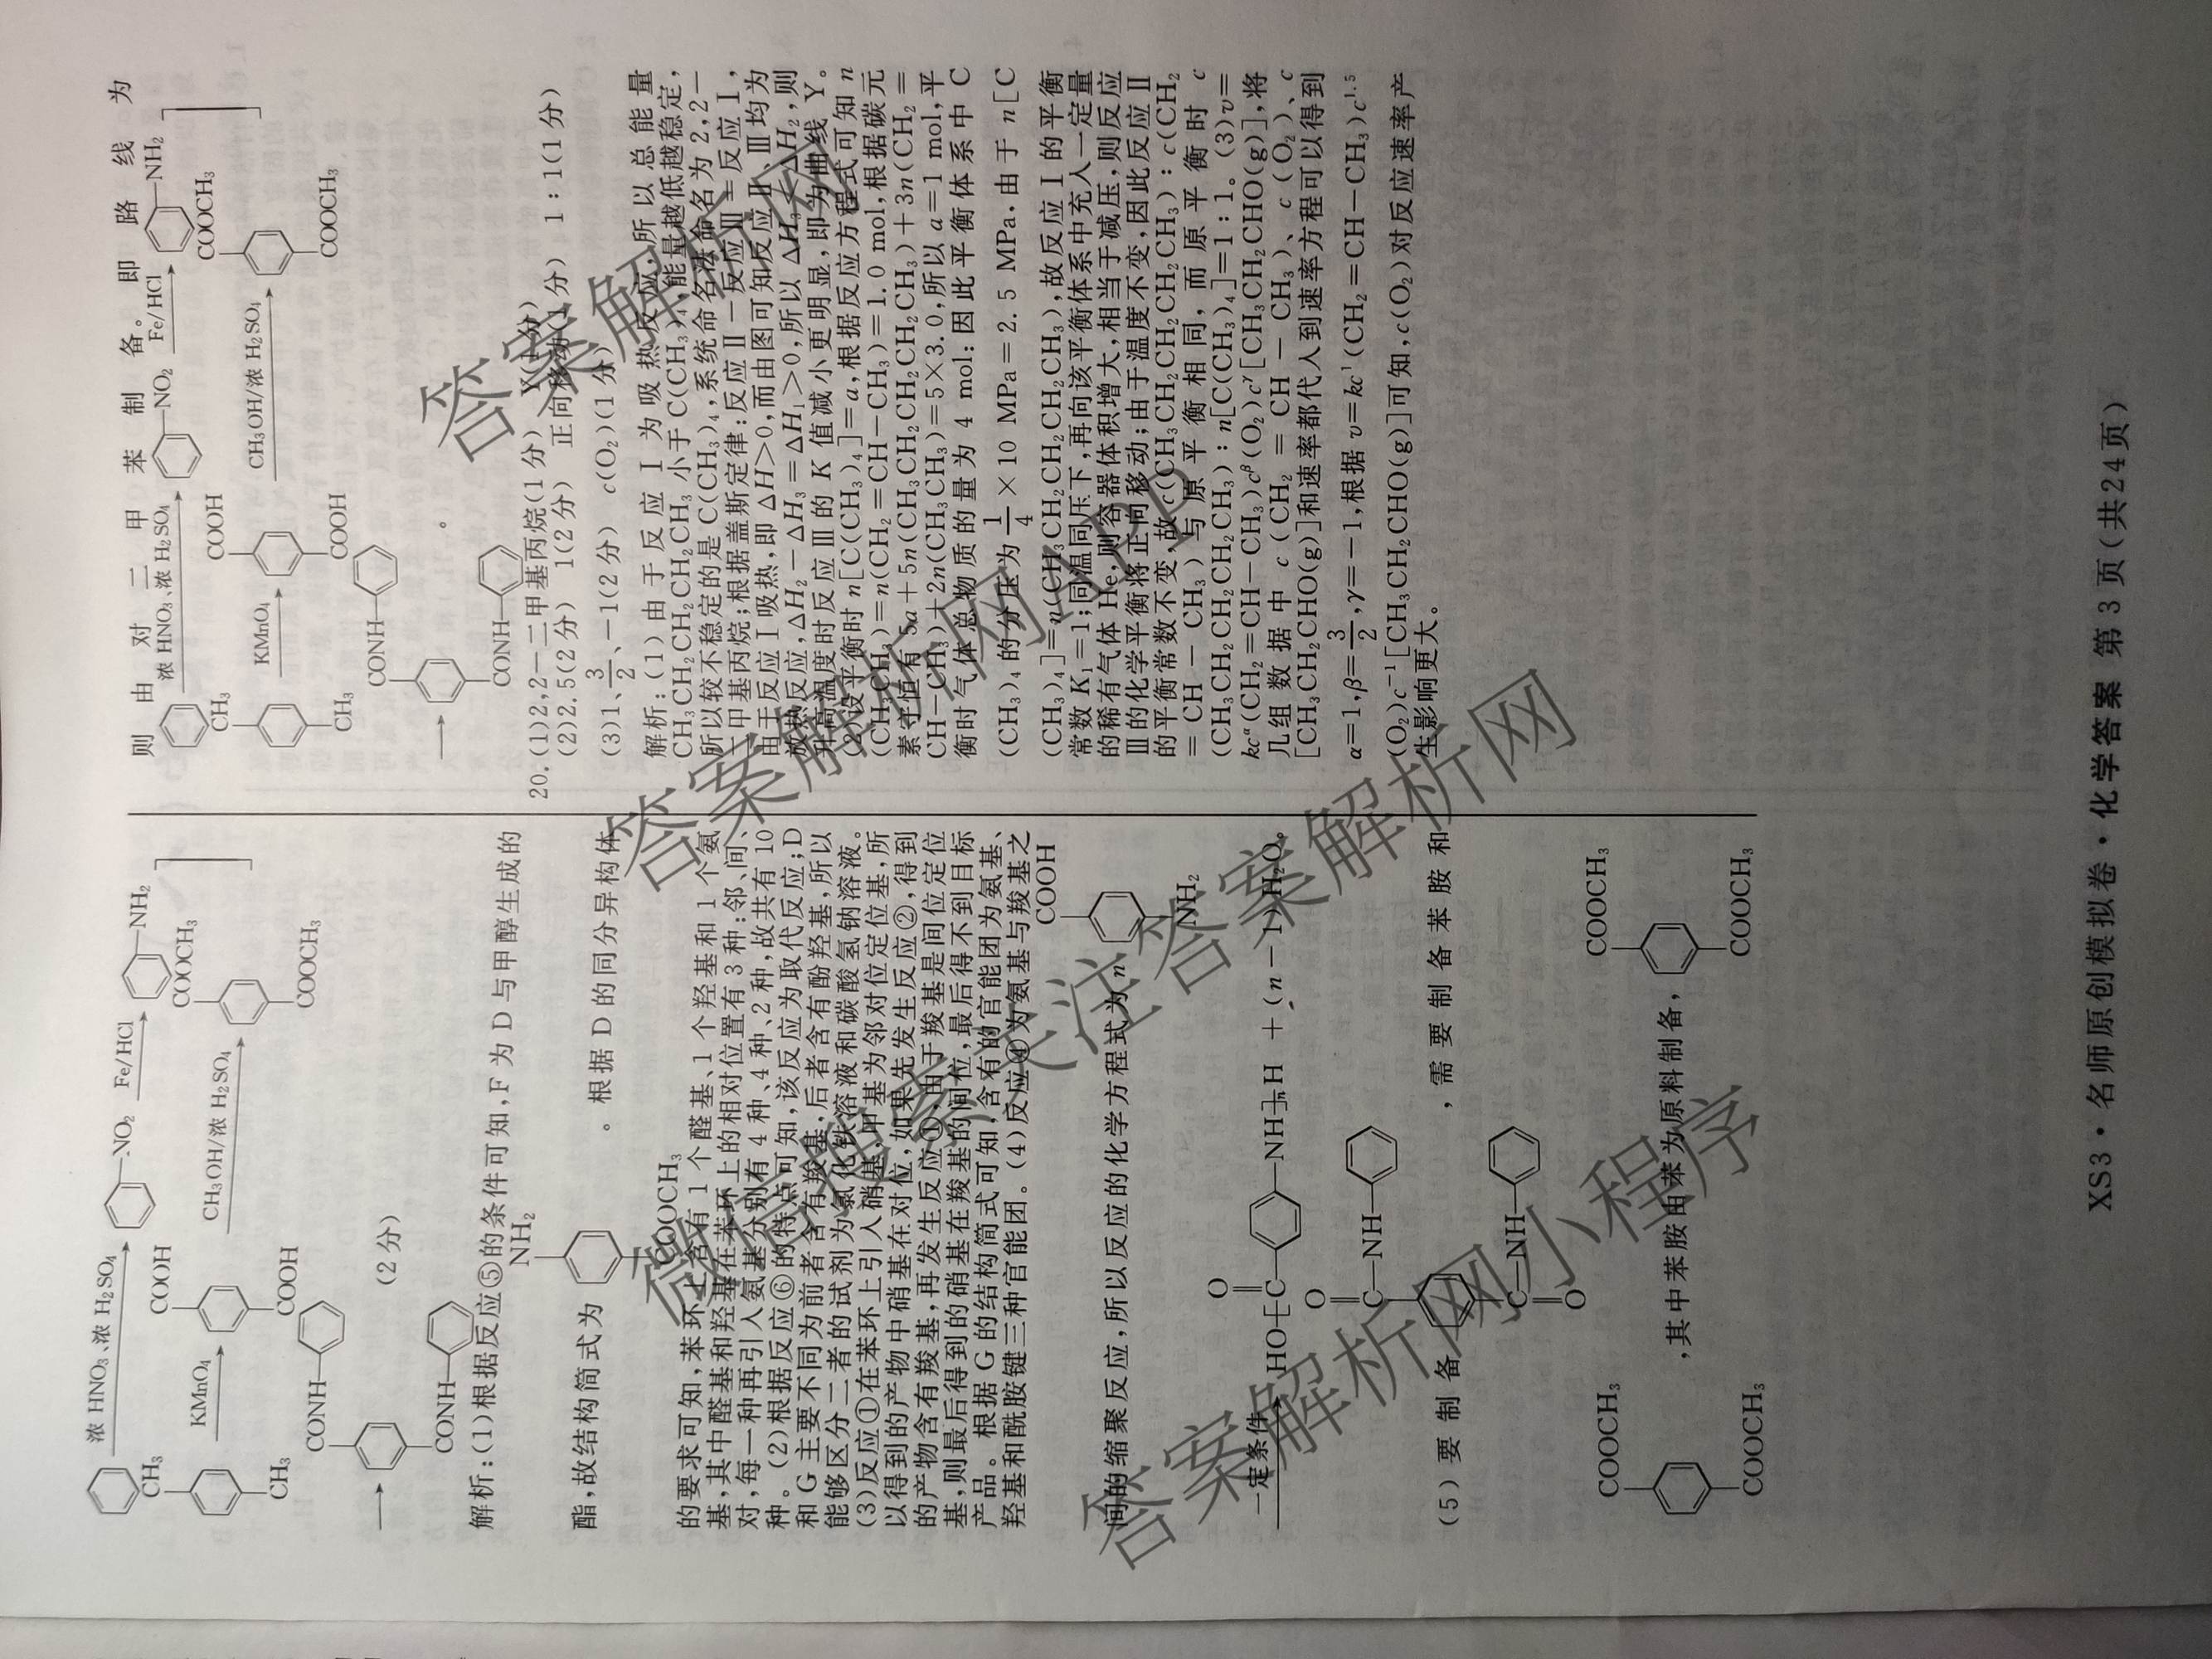 浓 HNO₃、浓 H₂SO₄
—NO₂
Fe/HCl
—NH₂
CH₃
CH₃
KMnO₄
COOH
COOH
CH₃OH/浓 H₂SO₄
COOCH₃
COOCH₃
CONH—
CONH—
(2分)
解析:(1)根据反应⑤的条件可知,F 为 D 与甲醇生成的
NH₂
酯,故结构简式为
。根据 D 的同分异构体
COOCH₃
的要求可知,苯环上含有 1 个醛基、1 个羟基和 1 个氨
基,其中醛基和羟基在苯环上的相对位置有 3 种:邻、间、
对,每一种再引入氨基分别有 4 种、4 种、2 种,故共有 10
种。(2)根据反应⑥的特点可知,该反应为取代反应;D
和 G 主要不同为前者含有羧基,后者含有酚羟基,所以
能够区分二者的试剂为氯化铁溶液和碳酸氢钠溶液。
(3)反应①在苯环上引入硝基,甲基为邻对位定位基,所
以得到的产物中硝基在对位,如果先发生反应②,得到
的产物含有羧基,再发生反应①,由于羧基是间位定位
基,则最后得到的硝基在羧基的间位,最后得不到目标
产品。根据 G 的结构简式可知,含有的官能团为氨基、
羟基和酰胺键三种官能团。(4)反应④为氨基与羧基之
COOH
间的缩聚反应,所以反应的化学方程式为 n
NH₂
一定条件
O
HO—[C—
—NH—]ₙH + (n-1)H₂O。
O
C—NH—
(5)要制备
,需要制备苯胺和
C—NH—
O
COOCH₃
COOCH₃
,其中苯胺由苯为原料制备,
COOCH₃
COOCH₃
则由对二甲苯制备。即路线为
浓 HNO₃、浓 H₂SO₄
—NO₂
Fe/HCl
—NH₂
CH₃
CH₃
KMnO₄
COOH
COOH
CH₃OH/浓 H₂SO₄
COOCH₃
COOCH₃
CONH—
CONH—
。
20.(1)2,2-二甲基丙烷(1分) Y(1分)
(2)2.5(2分) 1(2分) 正向移动(1分) 1:1(1分)
(3)1、3/2、-1(2分) c(O₂)(1分)
解析:(1)由于反应 Ⅰ 为吸热反应,所以总能量
CH₃CH₂CH₂CH₂CH₃ 小于 C(CH₃)₄,能量越低越稳定,
所以较不稳定的是 C(CH₃)₄,系统命名法命名为 2,2-
二甲基丙烷;根据盖斯定律:反应Ⅱ-反应Ⅲ=反应Ⅰ,
由于反应Ⅰ吸热,即 ΔH>0,而由图可知反应Ⅱ、Ⅲ均为
放热反应,ΔH₂-ΔH₃=ΔH₁>0,所以 ΔH₃<ΔH₂,则
升高温度时反应Ⅲ的 K 值减小更明显,即为曲线 Y。
(2)设平衡时 n[C(CH₃)₄]=a,根据反应方程式可知 n
(CH₃CH₃)=n(CH₂=CH-CH₃)=1.0 mol,根据碳元
素守恒有 5a+5n(CH₃CH₂CH₂CH₂CH₃)+3n(CH₂=
CH-CH₃)+2n(CH₃CH₃)=5×3.0,所以 a=1 mol,平
衡时气体总物质的量为 4 mol;因此平衡体系中 C
(CH₃)₄ 的分压为 1/4 × 10 MPa=2.5 MPa,由于 n[C
(CH₃)₄]=n(CH₃CH₂CH₂CH₂CH₃),故反应Ⅰ的平衡
常数 K₁=1;同温同压下,再向该平衡体系中充入一定量
的稀有气体 He,则容器体积增大,相当于减压,则反应
Ⅲ的化学平衡将正向移动;由于温度不变,因此反应Ⅱ
的平衡常数不变,故 c(CH₃CH₂CH₂CH₂CH₃):c(CH₂
=CH-CH₃)与原平衡相同,而原平衡时 c
(CH₃CH₂CH₂CH₂CH₃):n[C(CH₃)₄]=1:1。(3)v=
kcᵅ(CH₂=CH-CH₃)cᵝ(O₂)cᵞ[CH₃CH₂CHO(g)],将
几组数据中 c(CH₂=CH-CH₃)、c(O₂)、c
[CH₃CH₂CHO(g)]和速率都代入到速率方程可以得到
α=1,β=3/2,γ=-1,根据 v=kc¹(CH₂=CH-CH₃)c¹·⁵
(O₂)c⁻¹[CH₃CH₂CHO(g)]可知,c(O₂)对反应速率产
生影响更大。
XS3·名师原创模拟卷·化学答案 第3页(共24页)
答案解析网
答案解析网APP
答案解析网
答案解析网小程序